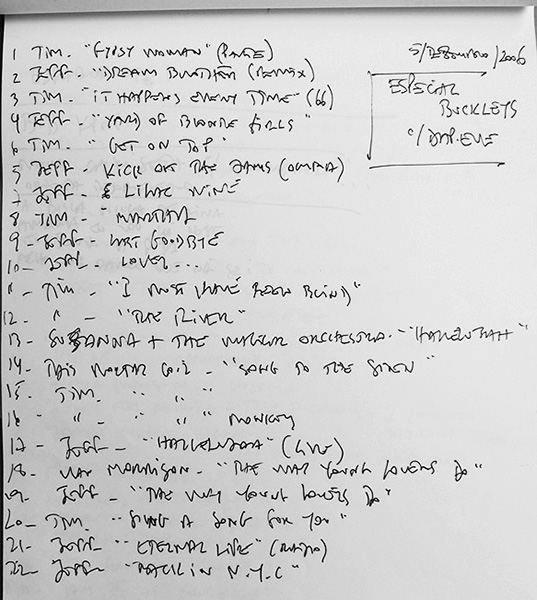 5/FEBRUARO/2006
ESPECIAL
BUCKLEYS
c/
1 TIM - "GYPSY WOMAN" (RARE)
2 JEFF - "DREAM BROTHER (REMIX)
3 TIM - "IT HAPPENS EVERY TIME" (66)
4 JEFF - "YARD OF BLONDE GIRLS"
6 TIM - "GET ON TOP"
5 JEFF - KICK OUT THE JAMS
7 JEFF - LILAC WINE
8 TIM - "MARTHA
9 - JEFF - LAST GOODBYE
10 - JEFF - LOVER...
11 - TIM - "I MUST HAVE BEEN BLIND"
12 - " - "THE RIVER"
13 - SUSANNA + THE MAGICAL ORCHESTRA - "HALLELUJAH"
14 - THIS MORTAL COIL - "SONG TO THE SIREN"
15 - TIM - " " "
16 " " - " " " MONKEES
17 - JEFF - "HALLELUJAH" (LIVE)
18 - VAN MORRISON - "THE WAY YOUNG LOVERS DO"
19 - JEFF - "THE WAY YOUNG LOVERS DO"
20 - TIM - "SING A SONG FOR YOU"
21 - JEFF - "ETERNAL LIFE" (RADIO)
22 - JEFF - "BACK IN N.Y.C"